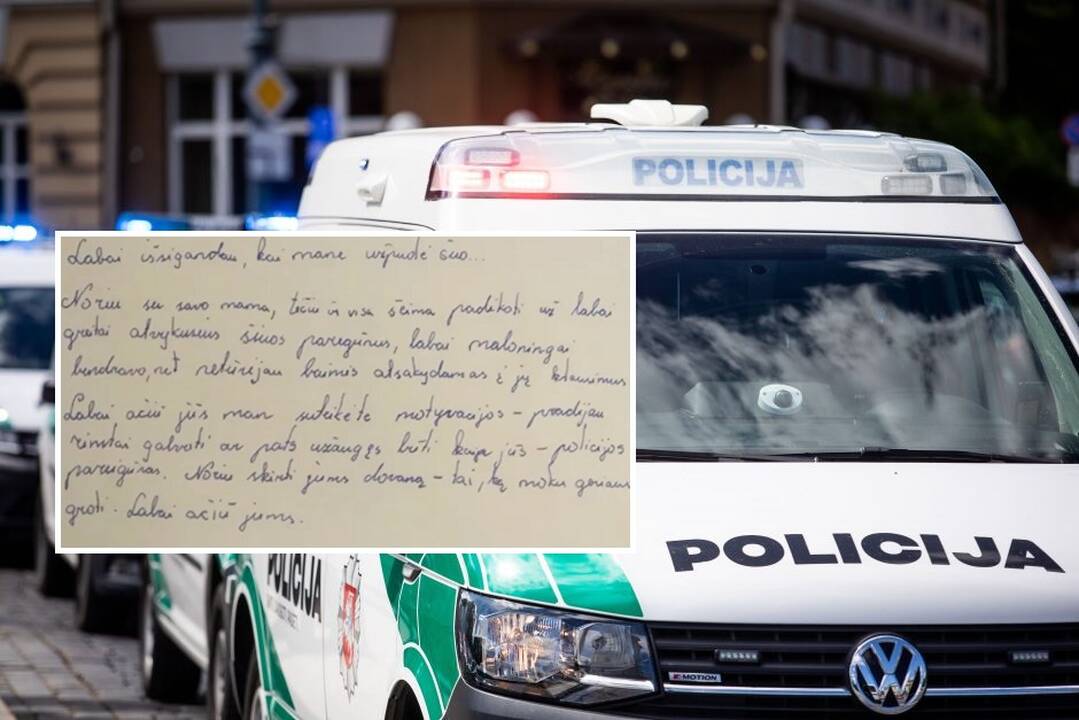 POLICIJA
Labai išsigandau, kai mane užpuolė šuo...
Noriu su savo mama, tėčiu ir visa šeima padėkoti už labai
greitai atvykusius šiuos pareigūnus, labai maloningai
bendravo, net neturėjau baimės atsakydamas į jų klausimus
Labai ačiū jūs man suteikėte motyvacijos - pradėjau
rimtai galvoti ar pats užaugęs būti kaip jūs - policijos
pareigūnas. Noriu skirti jums dovaną - tai, ką moku geriausi
groti. Labai ačiū jums.
POLICIJA
POLICIJA
E-MOTION